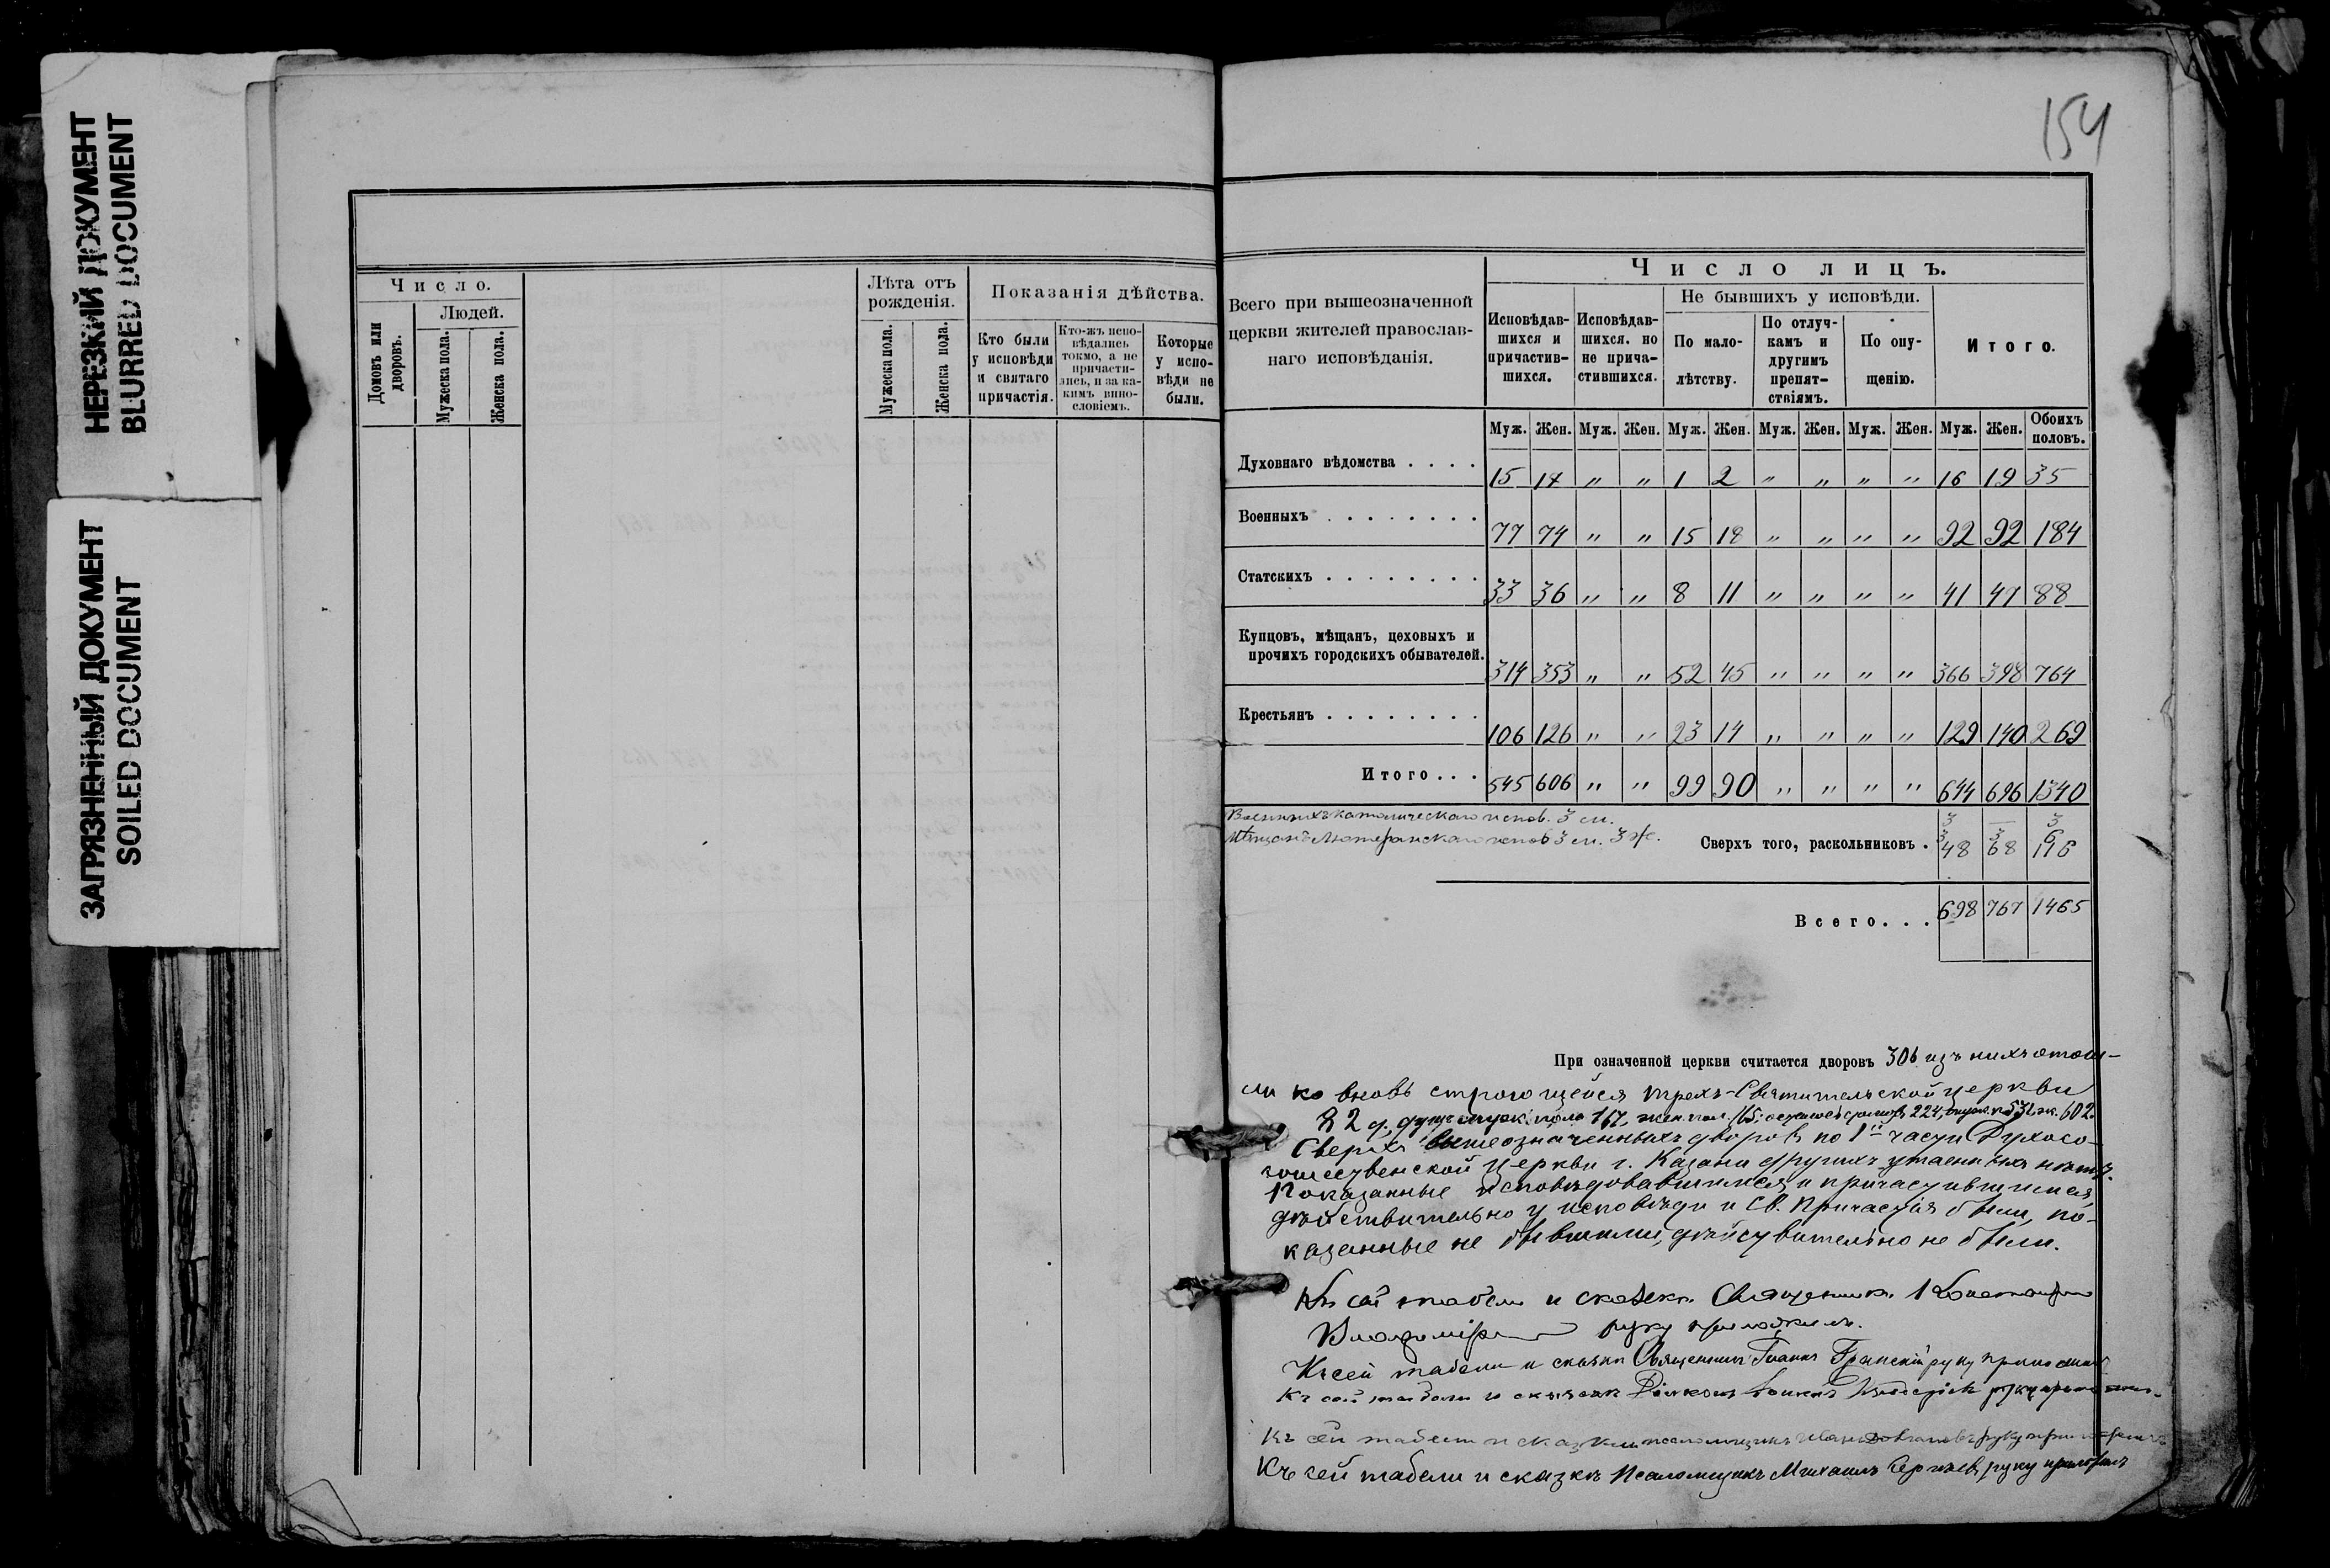 НЕРЕЗКИЙ ДОКУМЕНТ
BLURRED DOCUMENT
ЗАГРЯЗНЕННЫЙ ДОКУМЕНТ
SOILED DOCUMENT
Число.
Домовъ или дворовъ.
Людей.
Мужеска пола.
Женска пола.
Лѣта отъ рожденія.
Мужеска пола.
Женска пола.
Показанія дѣйства.
Кто были у исповѣди и святаго причастія.
Кто-жъ исповѣдались токмо, а не причастились, и за какимъ винословіемъ.
Которые у исповѣди не были.
154
Всего при вышеозначенной
церкви жителей православ-
наго исповѣданія.
Число лицъ.
Исповѣдав-
шихся и
причастив-
шихся.
Исповѣдав-
шихся. но
не прича-
стившихся.
Не бывшихъ у исповѣди.
По мало-
лѣтству.
По отлуч-
камъ и
другимъ
препят-
ствіямъ.
По опу-
щенію.
Итого.
Муж. Жен. Муж. Жен. Муж. Жен. Муж. Жен. Муж. Жен. Муж. Жен. Обоихъ половъ.
Духовнаго вѣдомства . . . . 15 17 „ „ 1 2 „ „ „ „ 16 19 35
Военныхъ . . . . . . . . 77 74 „ „ 15 18 „ „ „ „ 92 92 184
Статскихъ . . . . . . . . 33 36 „ „ 8 11 „ „ „ „ 41 47 88
Купцовъ, мѣщанъ, цеховыхъ и
прочихъ городскихъ обывателей. 314 353 „ „ 52 45 „ „ „ „ 366 398 764
Крестьянъ . . . . . . . . 106 126 „ „ 23 14 „ „ „ „ 129 140 269
Итого . . . 545 606 „ „ 99 90 „ „ „ „ 644 696 1340
Военныхъ католическаго испов. 3 м. 3 — 3
Мѣщанъ Лютеранскаго испов 3 м. 3 ж. 3 3 6
Сверхъ того, раскольниковъ . 48 68 116
Всего. . . 698 767 1465
При означенной церкви считается дворовъ 306 изъ нихъ отош-
ли ко вновь строющейся Трехъ-Святительской церкви
82 д. душъ муж. пола 167, жен. пол. 165;
Сверхъ вышеозначенныхъ дворовъ по 1й части Духосо-
шественской церкви г. Казани другихъ утаенныхъ нѣтъ.
Показанные исповѣдовавшимися и причастившимися,
дѣйствительно у исповѣди и Св. Причастія были, по-
казанные не бывшими, дѣйствительно не были.
Къ сей табели и сказкѣ Священникъ
руку приложилъ.
Къ сей табели и сказкѣ Священникъ Іоаннъ Гранскій руку приложилъ
Къ сей табели и сказкѣ Діаконъ руку приложилъ.
Къ сей табели и сказкѣ псаломщикъ руку приложилъ
Къ сей табели и сказкѣ Псаломщикъ Михаилъ Сергѣевъ руку приложилъ